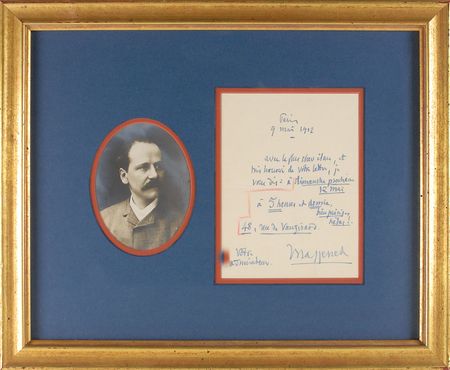 Paris
9 mai 1912
avec le plus vif élan, et
très honoré de votre lettre, je
vous dis : à dimanche prochain
12 mai
à 3 heures et demie,
48, rue de Vaugirard.
Massenet